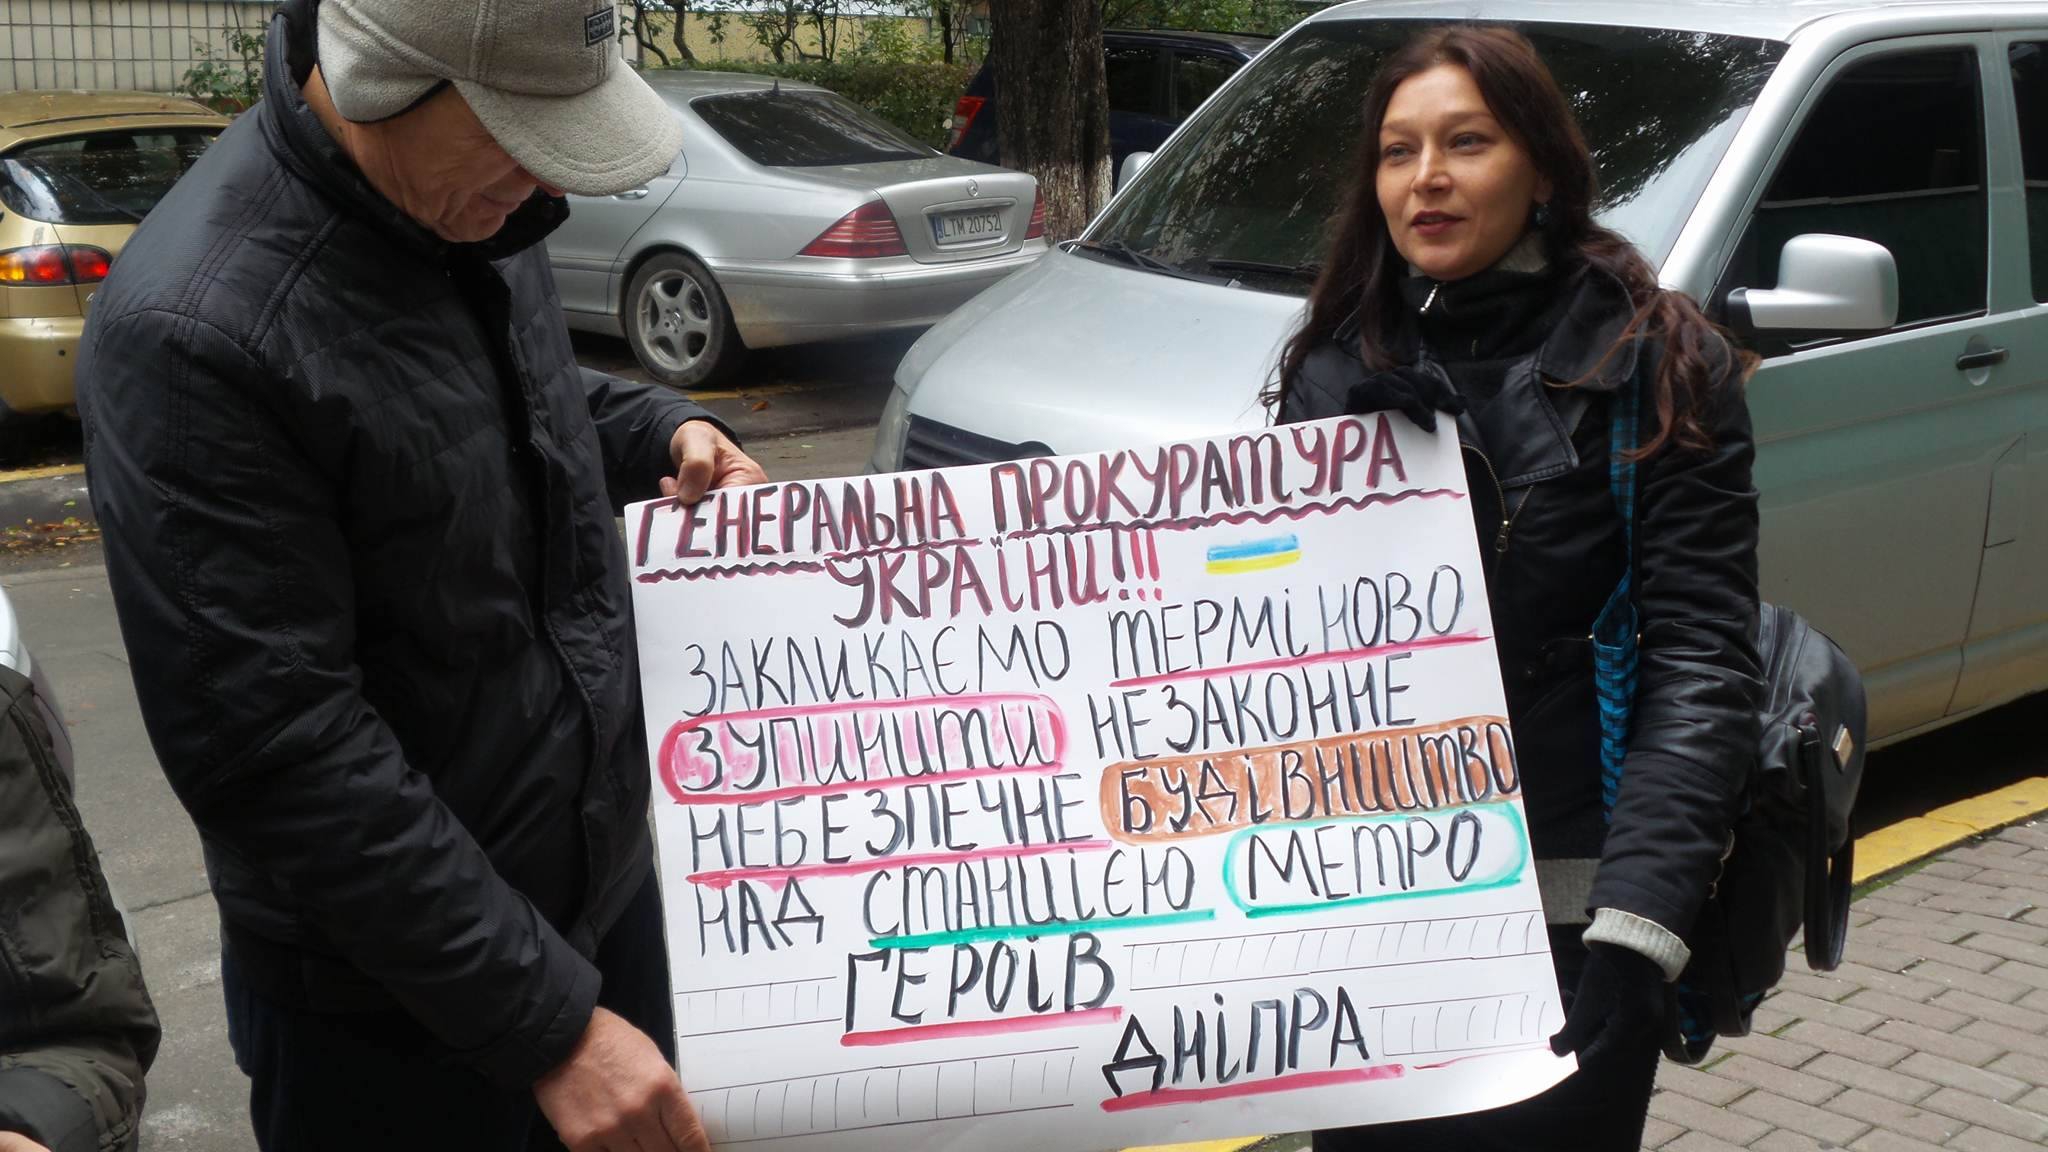 LTM 20752
ГЕНЕРАЛЬНА ПРОКУРАТУРА
УКРАЇНИ!!!
ЗАКЛИКАЄМО ТЕРМІНОВО
ЗУПИНИТИ НЕЗАКОННЕ
НЕБЕЗПЕЧНЕ БУДІВНИЦТВО
НАД СТАНЦІЄЮ МЕТРО
ГЕРОЇВ
ДНІПРА